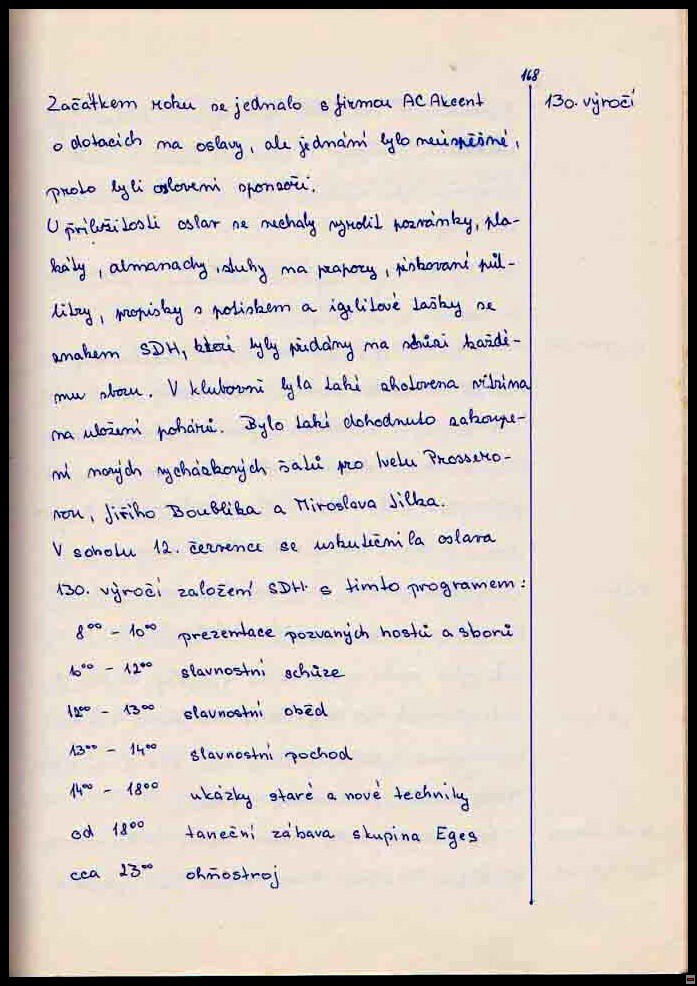 168
Začátkem roku se jednalo s firmou AC Akcent
130. výročí
o dotacích na oslavy, ale jednání bylo neúspěšné,
proto byli osloveni sponzoři.
U příležitosti oslav se nechaly vyrobit pozvánky, pla-
káty, almanachy, stuhy na prapory, pískované půl-
litry, propisky s potiskem a igelitové tašky se
znakem SDH, které byly předány na schůzi každé-
mu sboru. V klubovně byla také zhotovena vitrína
na uložení pohárů. Bylo také dohodnuto zakoupe-
ní nových vycházkových šatů pro Ivetu Prossero-
vou, Jiřího Boublíka a Miroslava Jílka.
V sobotu 12. července se uskutečnila oslava
130. výročí založení SDH s tímto programem:
8⁰⁰ - 10⁰⁰ prezentace pozvaných hostů a sborů
10⁰⁰ - 12⁰⁰ slavnostní schůze
12⁰⁰ - 13⁰⁰ slavnostní oběd
13⁰⁰ - 14⁰⁰ slavnostní pochod
14⁰⁰ - 18⁰⁰ ukázky staré a nové techniky
od 18⁰⁰ taneční zábava skupina Eges
cca 23⁰⁰ ohňostroj